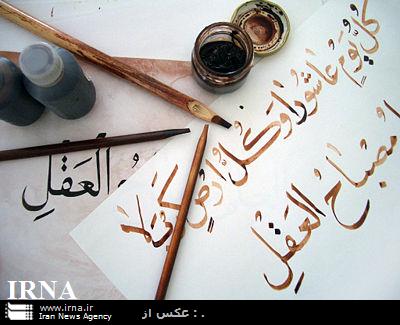 كُلُّ يَومٍ عاشُورا وَ كُلُّ اَرضٍ كَربَلا
مصباحُ العَقلِ
العَقْلِ
IRNA
www.irna.ir
Iran News Agency
. : عکس از